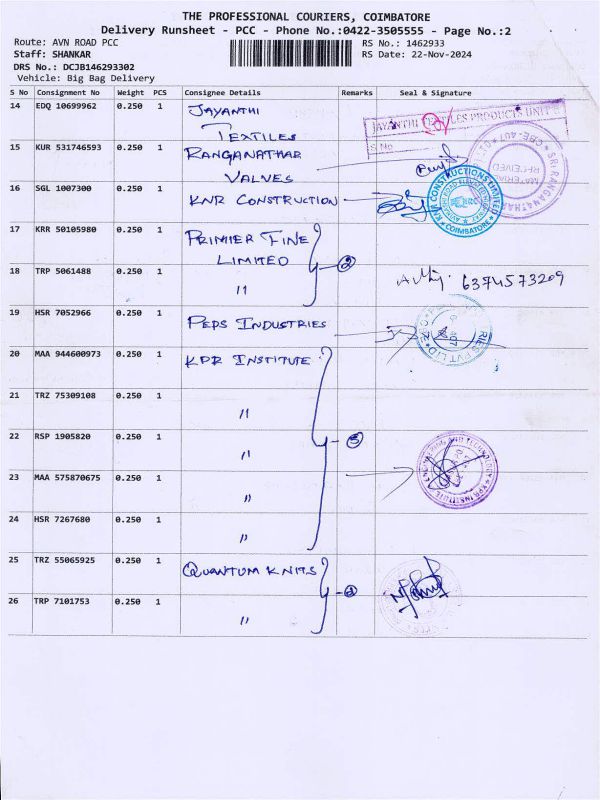 THE PROFESSIONAL COURIERS, COIMBATORE
Delivery Runsheet - PCC - Phone No.:0422-3505555 - Page No.:2
Route: AVN ROAD PCC RS No.: 1462933
Staff: SHANKAR RS Date: 22-Nov-2024
DRS No.: DCJB146293302
Vehicle: Big Bag Delivery
S No Consignment No Weight PCS Consignee Details Remarks Seal & Signature
14 EDQ 10699962 0.250 1 JAYANTHI
TEXTILES
JAYANTHI TEXTILES PRODUCTS UNIT
S No
15 KUR 531746593 0.250 1 RANGANATHAR
VALVES
SRI RANGANATHAR
MATERIAL
RECEIVED
16 SGL 1007300 0.250 1 KNR CONSTRUCTION
KNR CONSTRUCTIONS LIMITED
COIMBATORE
17 KRR 50105980 0.250 1 PRIMIER FINE
LIMITED
2
18 TRP 5061488 0.250 1 "
6374573209
19 HSR 7052966 0.250 1 PEPS INDUSTRIES
20 MAA 944600973 0.250 1 KPR INSTITUTE
21 TRZ 75309108 0.250 1 "
22 RSP 1905820 0.250 1 "
5
KPR INSTITUTE ENGINEERING AND TECHNOLOGY
23 MAA 575870675 0.250 1 "
24 HSR 7267680 0.250 1 "
25 TRZ 55065925 0.250 1 QUANTUM KNITS
2
26 TRP 7101753 0.250 1 "